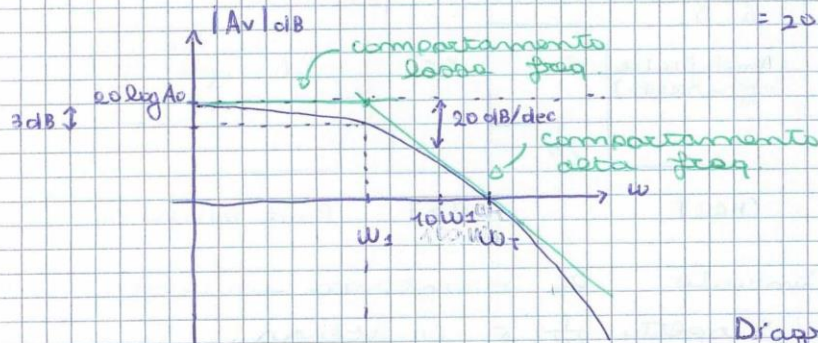 |Av|dB
= 20
comportamento
bassa freq.
20logAo
3dB
20dB/dec
comportamento
alta freq.
ω
10ω1
ω1
ωT
Diagr